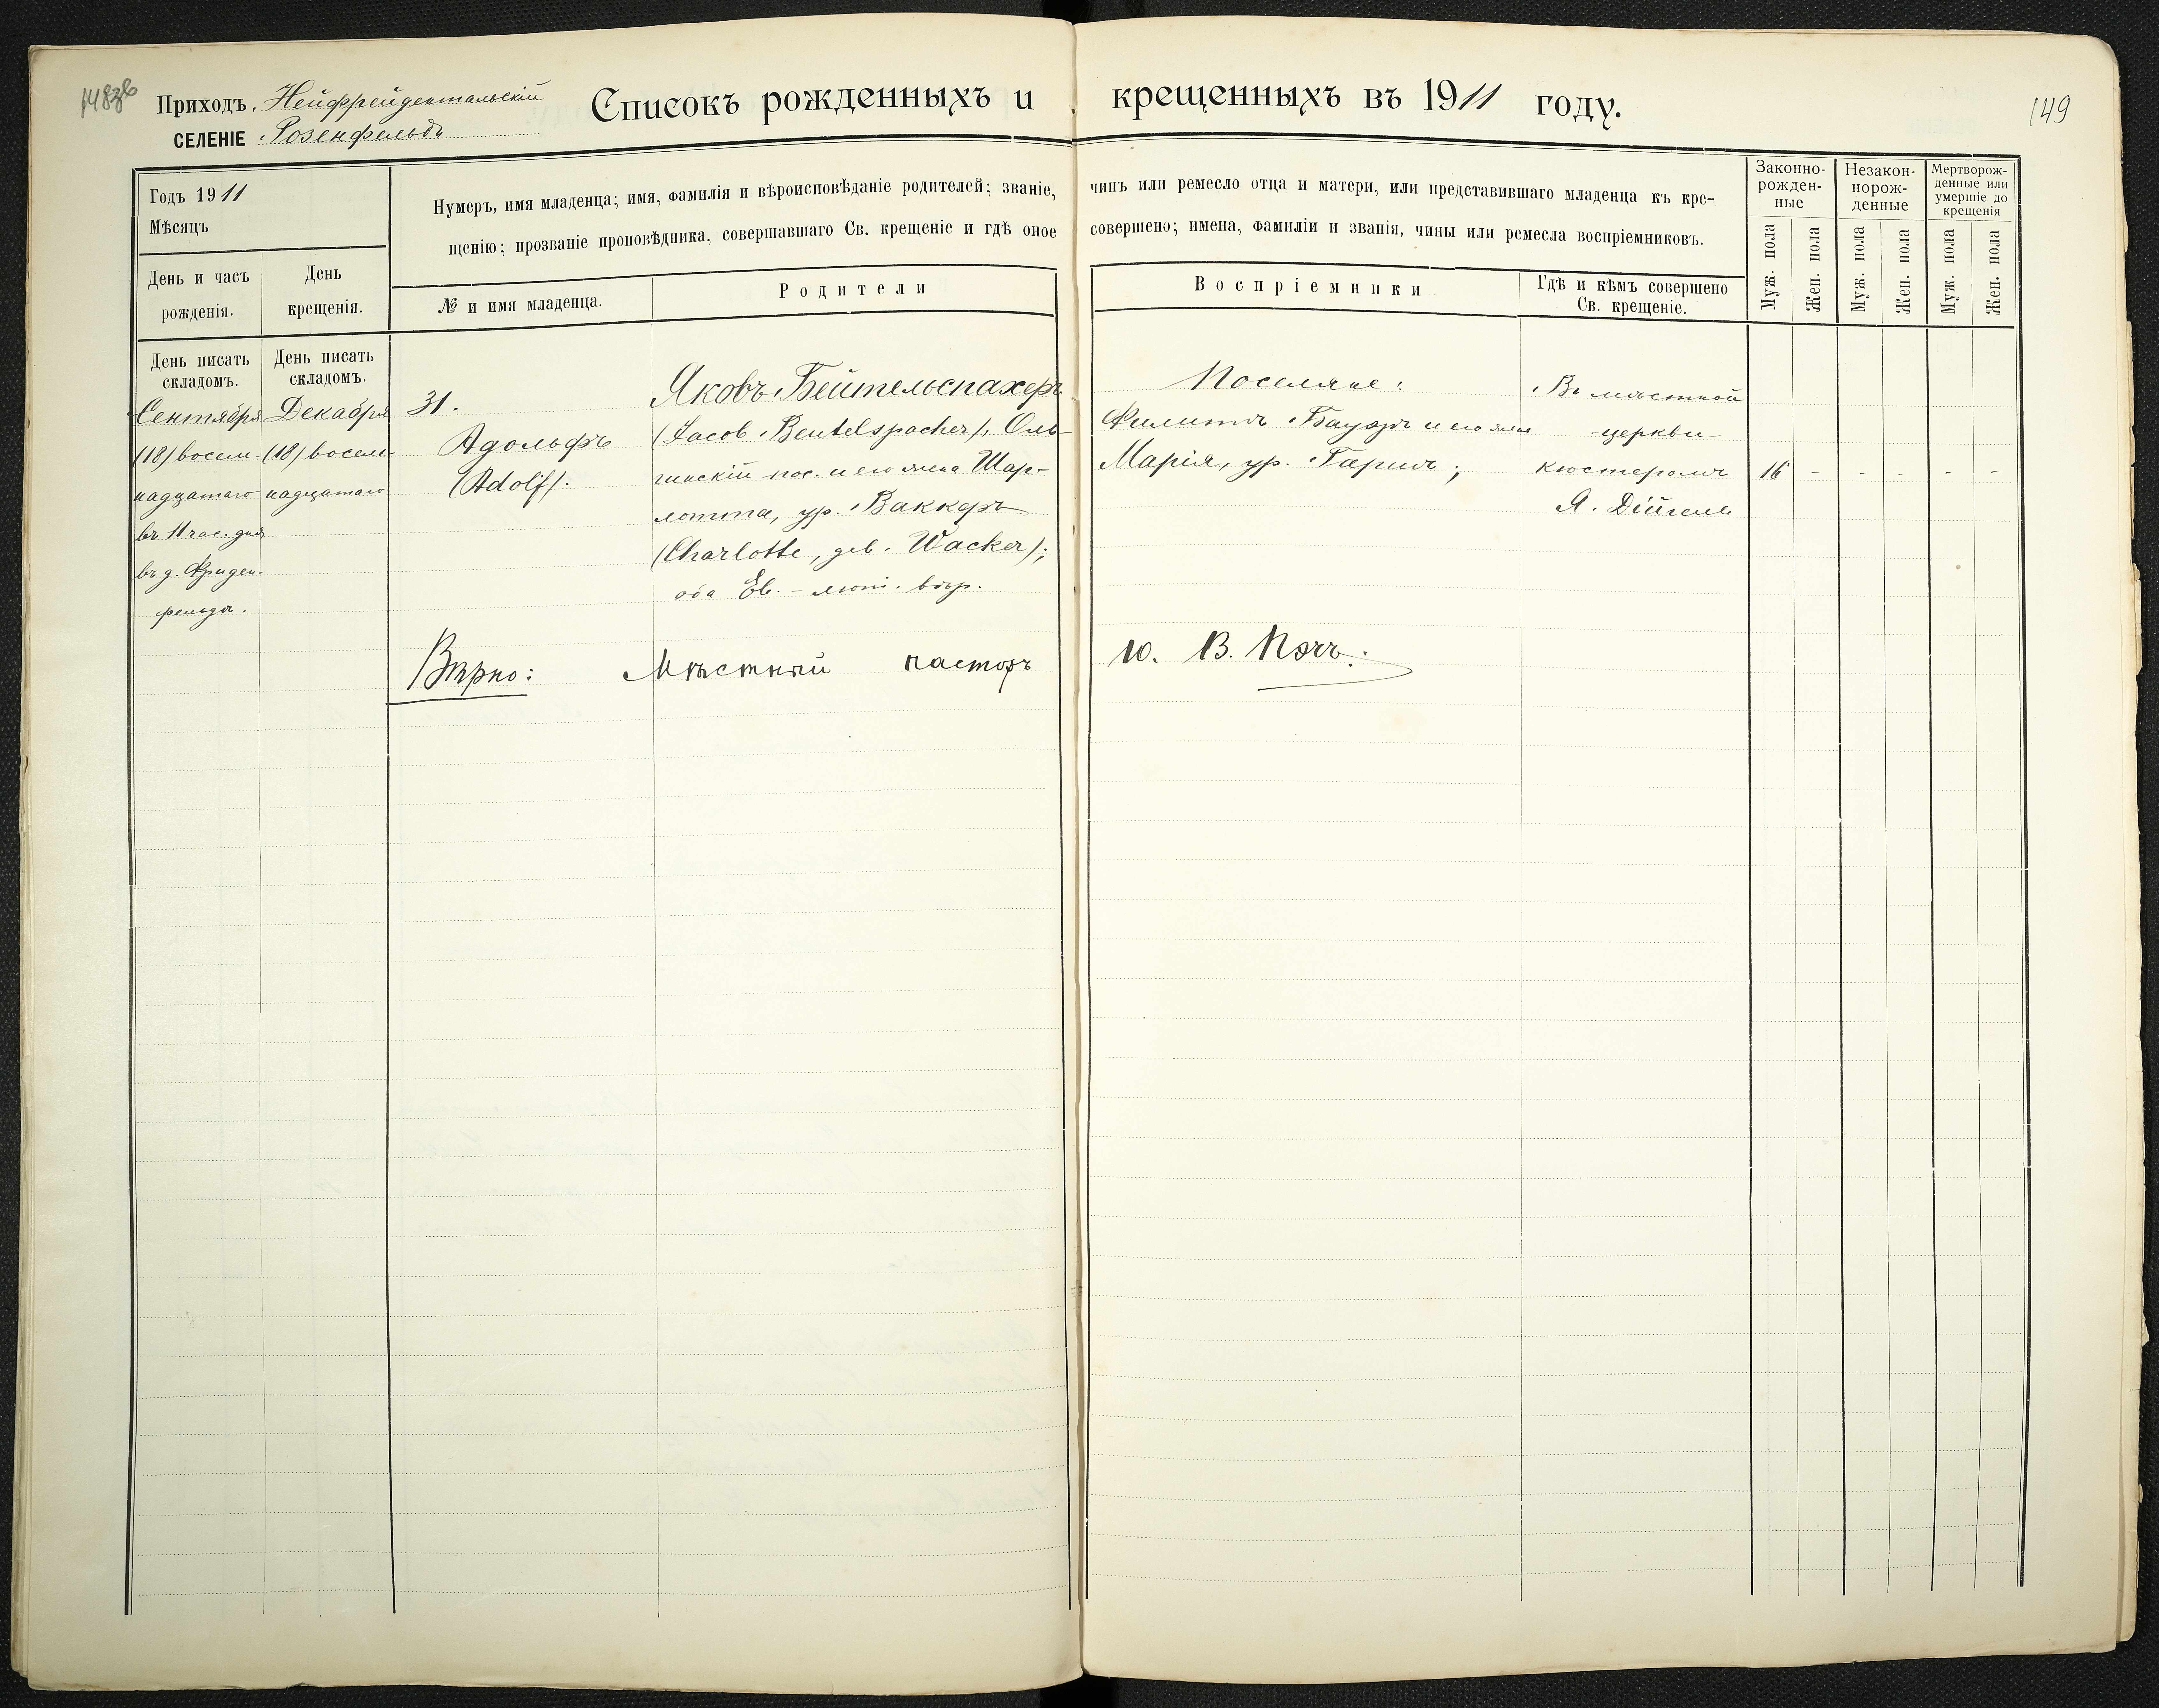 Приходъ. Нейфрейдентальскій
СЕЛЕНІЕ Розенфельдъ
Списокъ рожденныхъ и крещенныхъ въ 1911 году.
149
Годъ 1911
Мѣсяцъ
День и часъ рожденія.
День крещенія.
Нумеръ, имя младенца; имя, фамилія и вѣроисповѣданіе родителей; званіе, чинъ или ремесло отца и матери, или представившаго младенца къ кре-
щенію; прозваніе проповѣдника, совершавшаго Св. крещеніе и гдѣ оное совершено; имена, фамиліи и званія, чины или ремесла воспріемниковъ.
№ и имя младенца.
Родители
Воспріемники
Гдѣ и кѣмъ совершено
Св. крещеніе.
Законно-
рожден-
ные
Незакон-
норож-
денные
Мертворож-
денные или
умершіе до
крещенія
Муж. пола
Жен. пола
Муж. пола
Жен. пола
Муж. пола
Жен. пола
День писать
складомъ.
Сентября
(18) восем-
надцатаго
въ 11 час. дня
въ д. Фриден-
фельдъ.
День писать
складомъ.
Декабря
(18) восем-
надцатаго
31.
Адольфъ
(Adolf).
Яковъ Бейтельспахеръ
(Jacob Beutelspacher), Оль-
гинскій пос. и его жена Шар-
лотта, ур. Ваккеръ
(Charlotte, geb. Wacker);
оба Ев. - лют. вѣр.
Поселяне:
Филиппъ Бауэръ и его жена
Марія, ур. Гариъ;
Въ мѣстной
церкви
кюстеромъ
Я. Дійгель
16 - - - - -
Вѣрно: Мѣстный пасторъ Ю. В. Пэчъ.